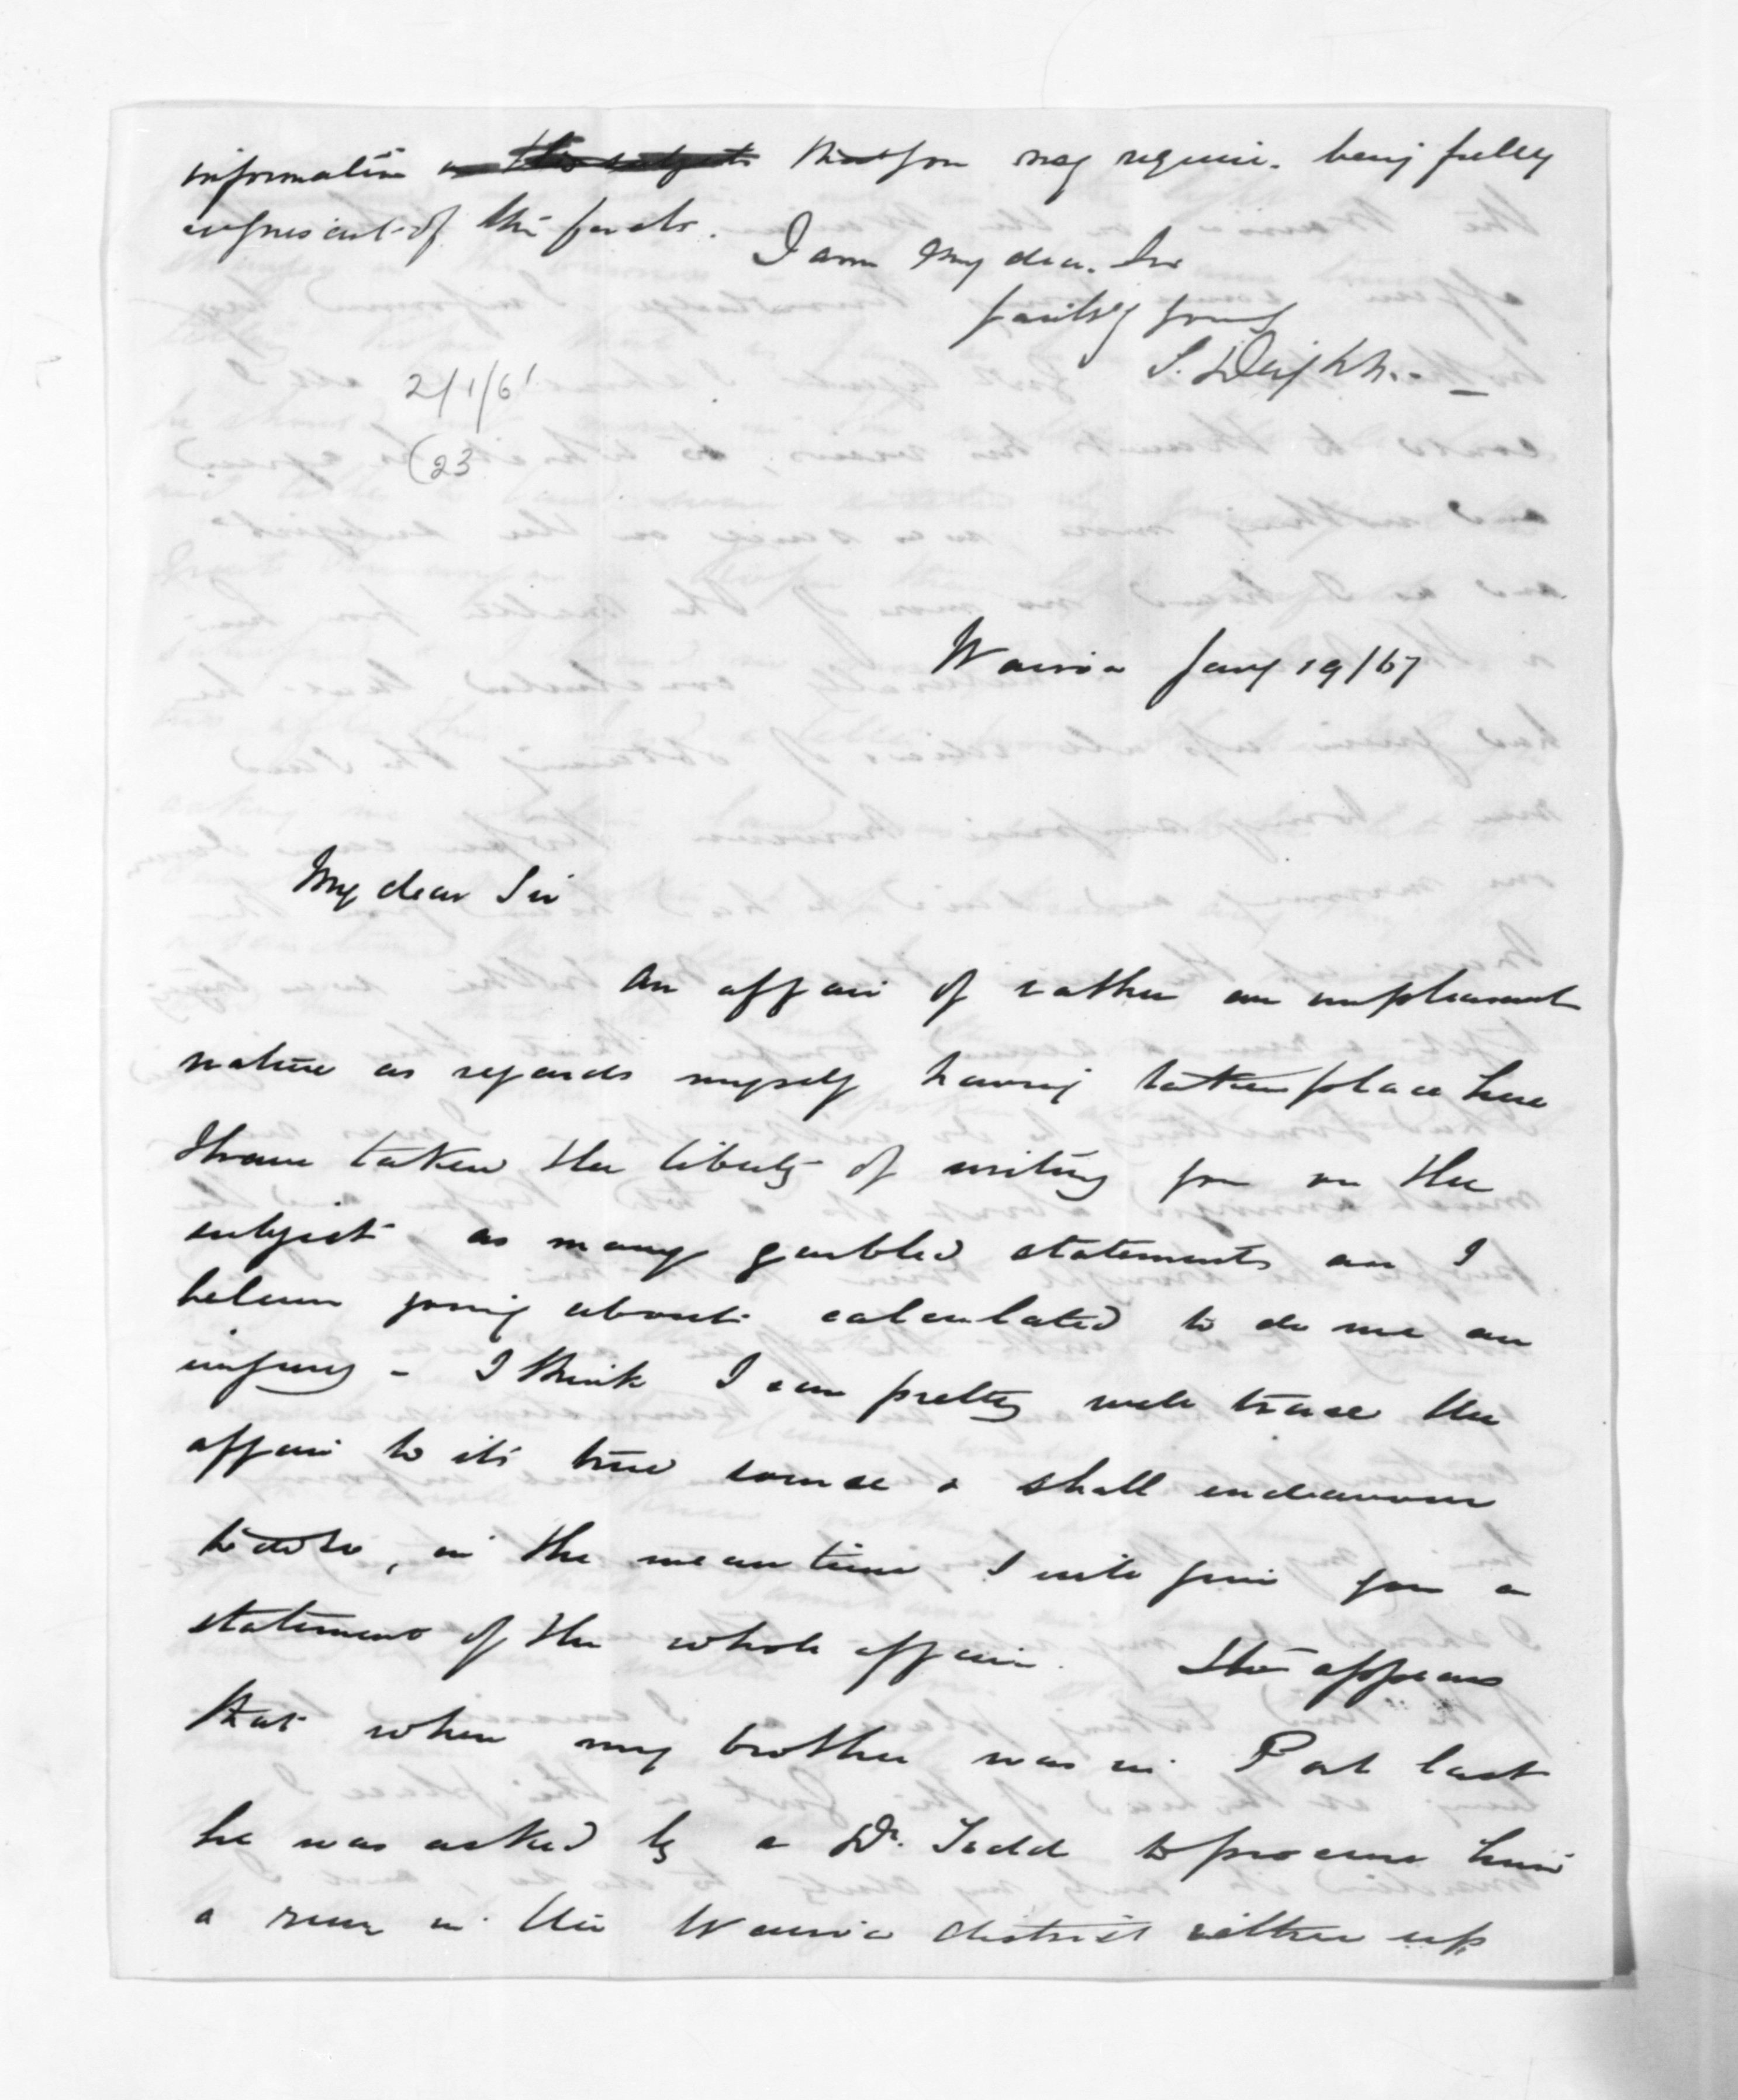 information ~~on this subject~~ that you may require. being fully
cognisant of the facts. I am My dear Sir
faithy yours
S. Deighton
2/1/61
(23
Wairoa Jany 19/67
My dear Sir
An affair of rather an unpleasant
nature as regards myself having taken place here
I have taken the liberty of writing you on the
subject as many garbled statements are I
believe going about calculated to do me an
injury - I think I can pretty well trace the
affair to its true source & shall endeavour
to do so, in the mean time I will give you a
statement of the whole affair. It appears
that when my brother was in Port last
he was asked by a Dr. Todd to procure him
a run in the Wairoa district either up